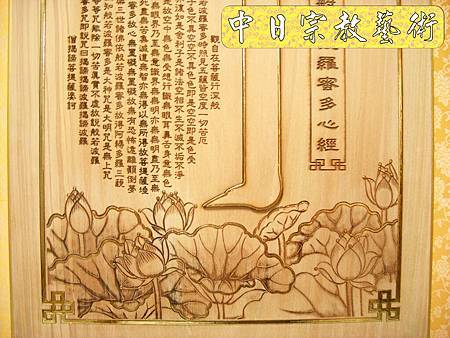 中日宗教藝術
羅審多心經
觀自在菩薩行深般
若波羅審多時照見五蘊皆空度一切苦厄
子色不異空空不異色色即是空空即是色受
復如是舍利子是諸法空相不生不滅不垢不淨
是故空中無色無受想行識無眼耳鼻舌身意無色
法無眼界乃至無意識界無無明亦無無明盡乃至無
無老死盡無苦集滅道無智亦無得以無所得故菩提薩埵
羅審多故心無罣礙無罣礙故無有恐怖遠離顛倒夢
三世諸佛依般若波羅審多故得阿耨多羅三藐
知般若波羅審多是大神咒是大明咒是無上咒
等咒能除一切苦真實不虛故說般若波羅
審多咒即說咒曰揭諦揭諦波羅揭諦波羅
僧揭諦菩提薩婆訶